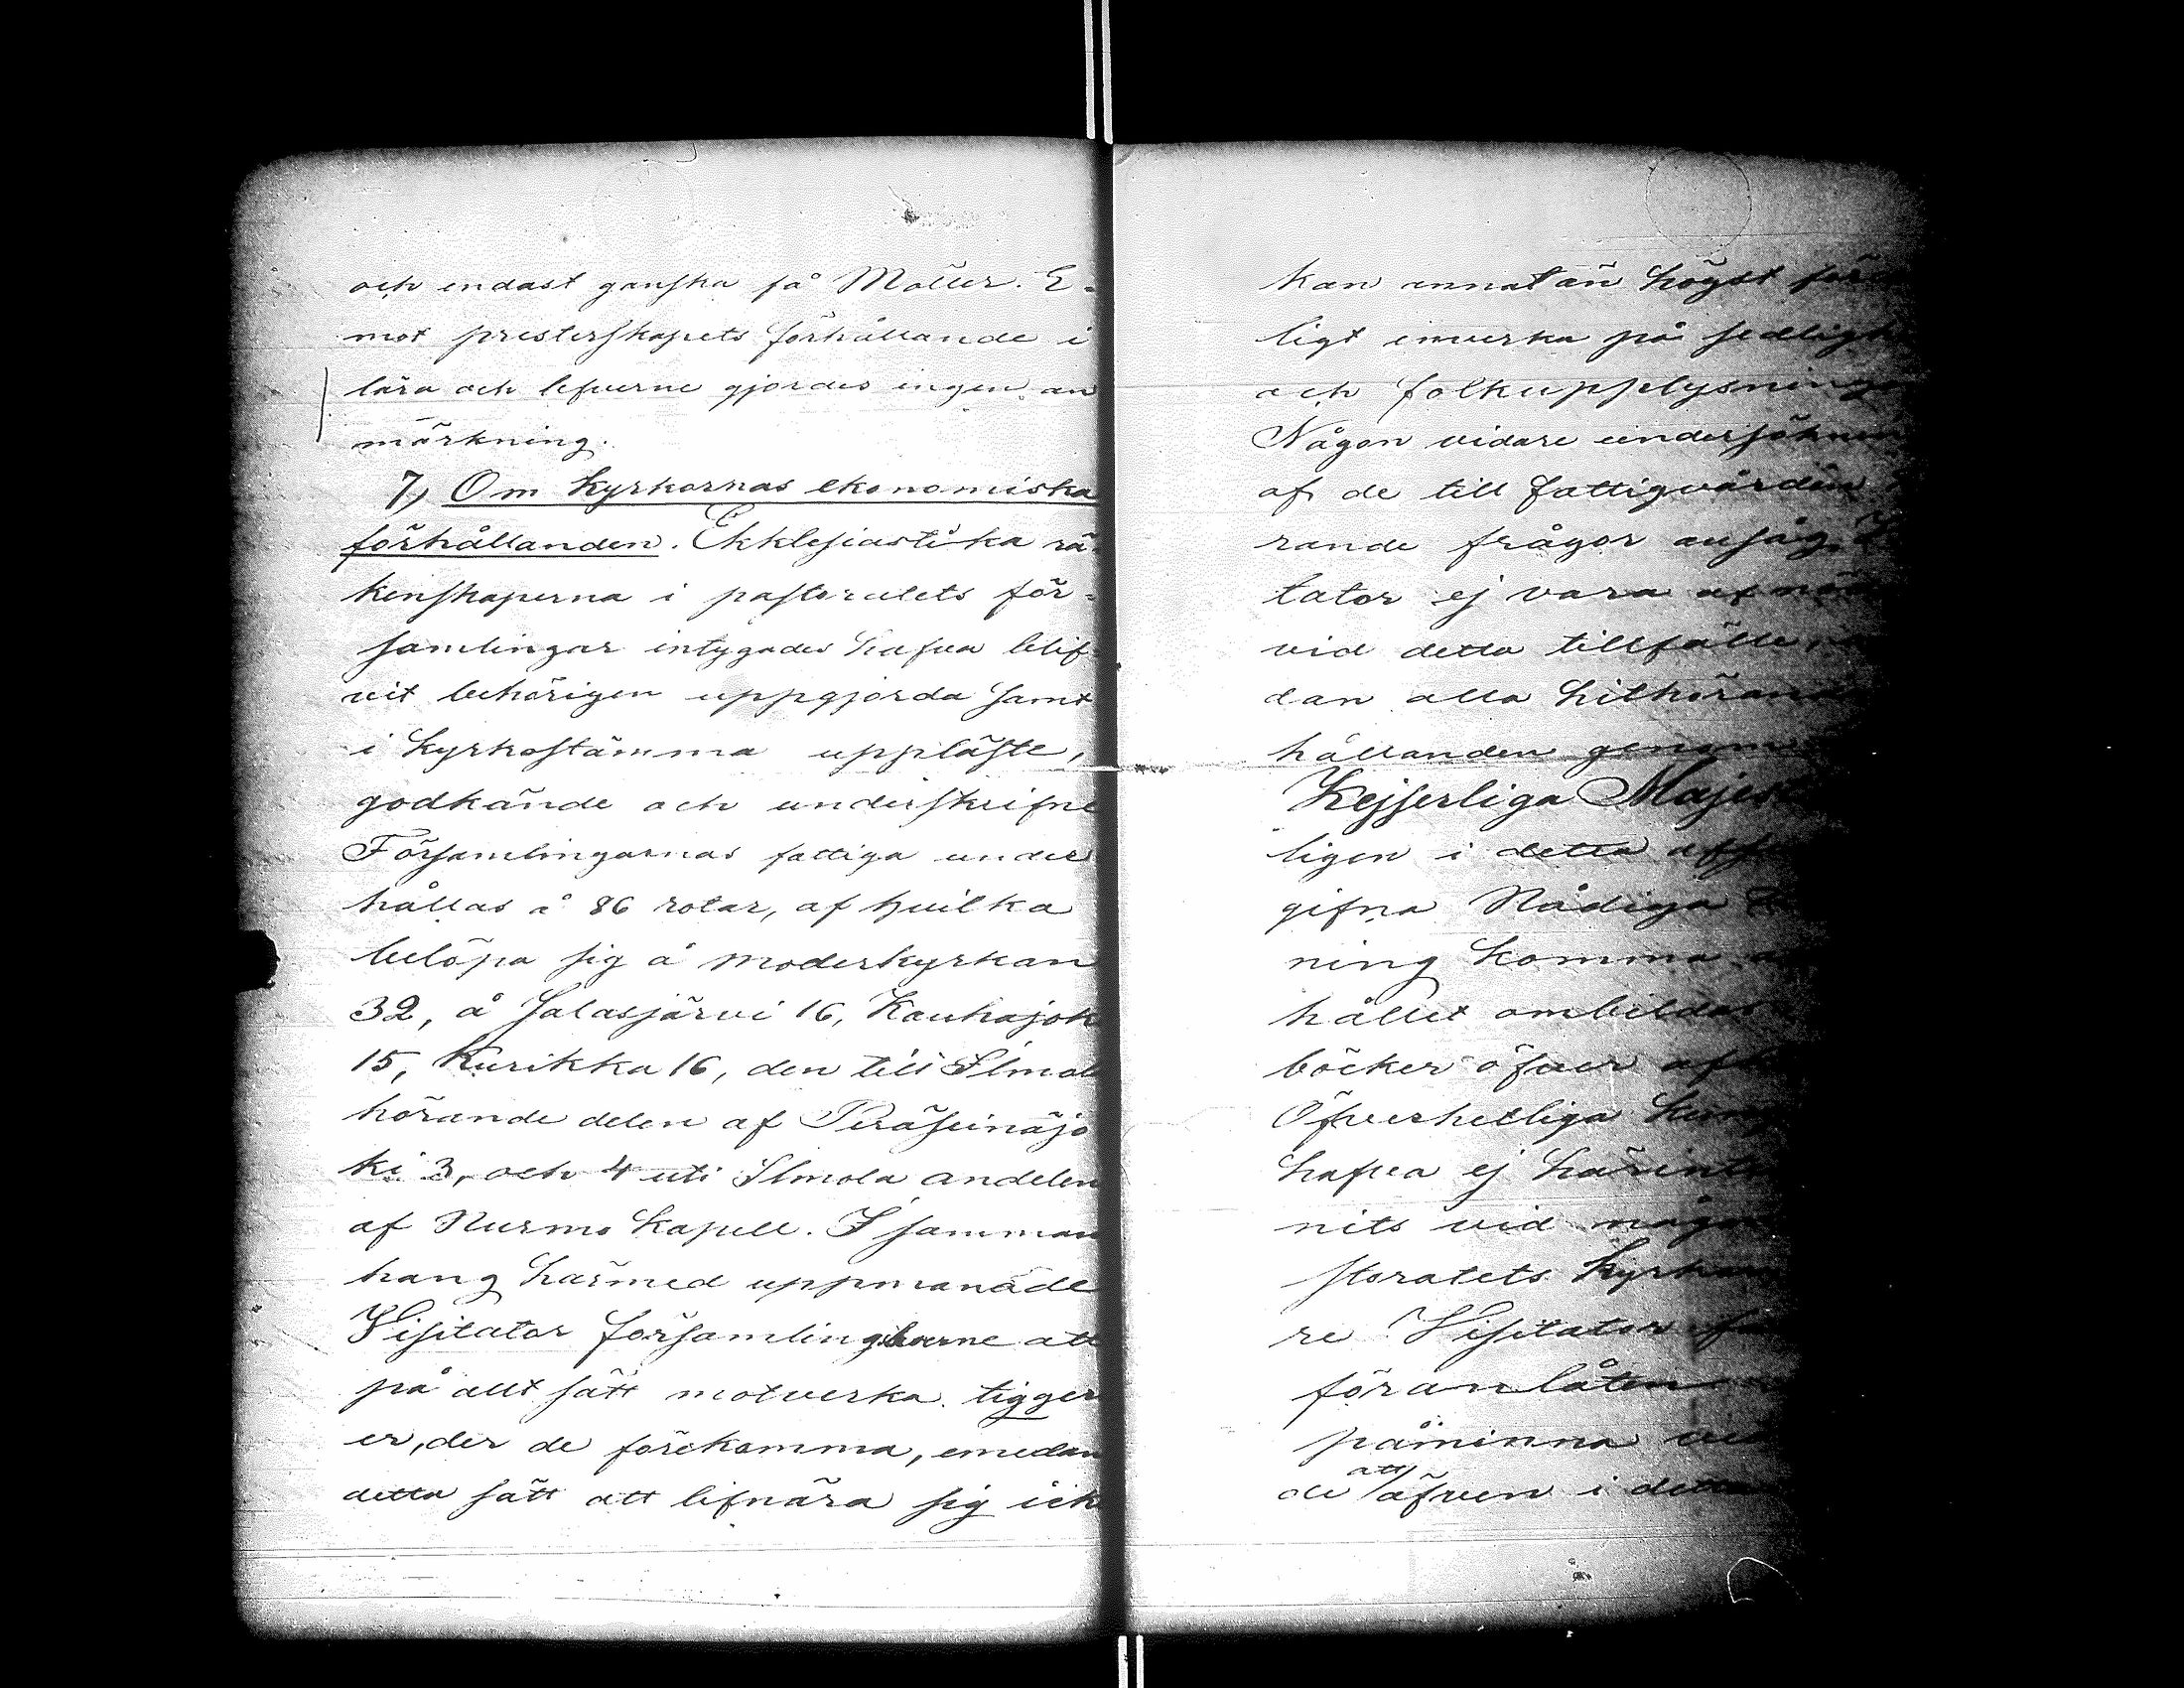 och endast ganska få Möller. E-
mot presterskapets förhållande i
lära och lefverne gjordes ingen an
märkning.
7, Om Kyrkornas ekonomiska
förhållanden. Ekklesiastika rä-
kenskaperna i pastoratets för-
samlingar intygades hafva blif-
vit behörigen uppgjorda samt
i Kyrkostämma uppläste,
godkände och underskrifne
Församlingarnas fattiga under
hållas å 86 rotar, af hvilka
belöpa sig å moderkyrkan
32, å Jalasjärvi 16, Kauhajok
15, Kurikka 16, den till Ilmol
hörande delen af Peräseinäjo
ki 3, och 4 uti Ilmola andelen
af Nurmo Kapell. I samman
hang härmed uppmanade
Visitator församlingsborne att
på allt sätt motverka tigger
er, der de förekomma, emedan
detta sätt att lifnära sig ick
kan annat än högst för
ligt inverka på sedligh
och folkupplysninge
Någon vidare undersökning
af de till fattigvården
rande frågor ansåg
tator ej vara af nö
vid detta tillfälle,
dan alla hithörand
hållanden genom
Kejserliga Majes
ligen i detta
gifna Nådiga
ning komma a
hållet ombildas
böcker öfver
Öfverhetliga Kung
hafva ej härint
nits vid någo
storatets Kyrkor
re Visitator
föranlåten
påminna
de att äfven i detta